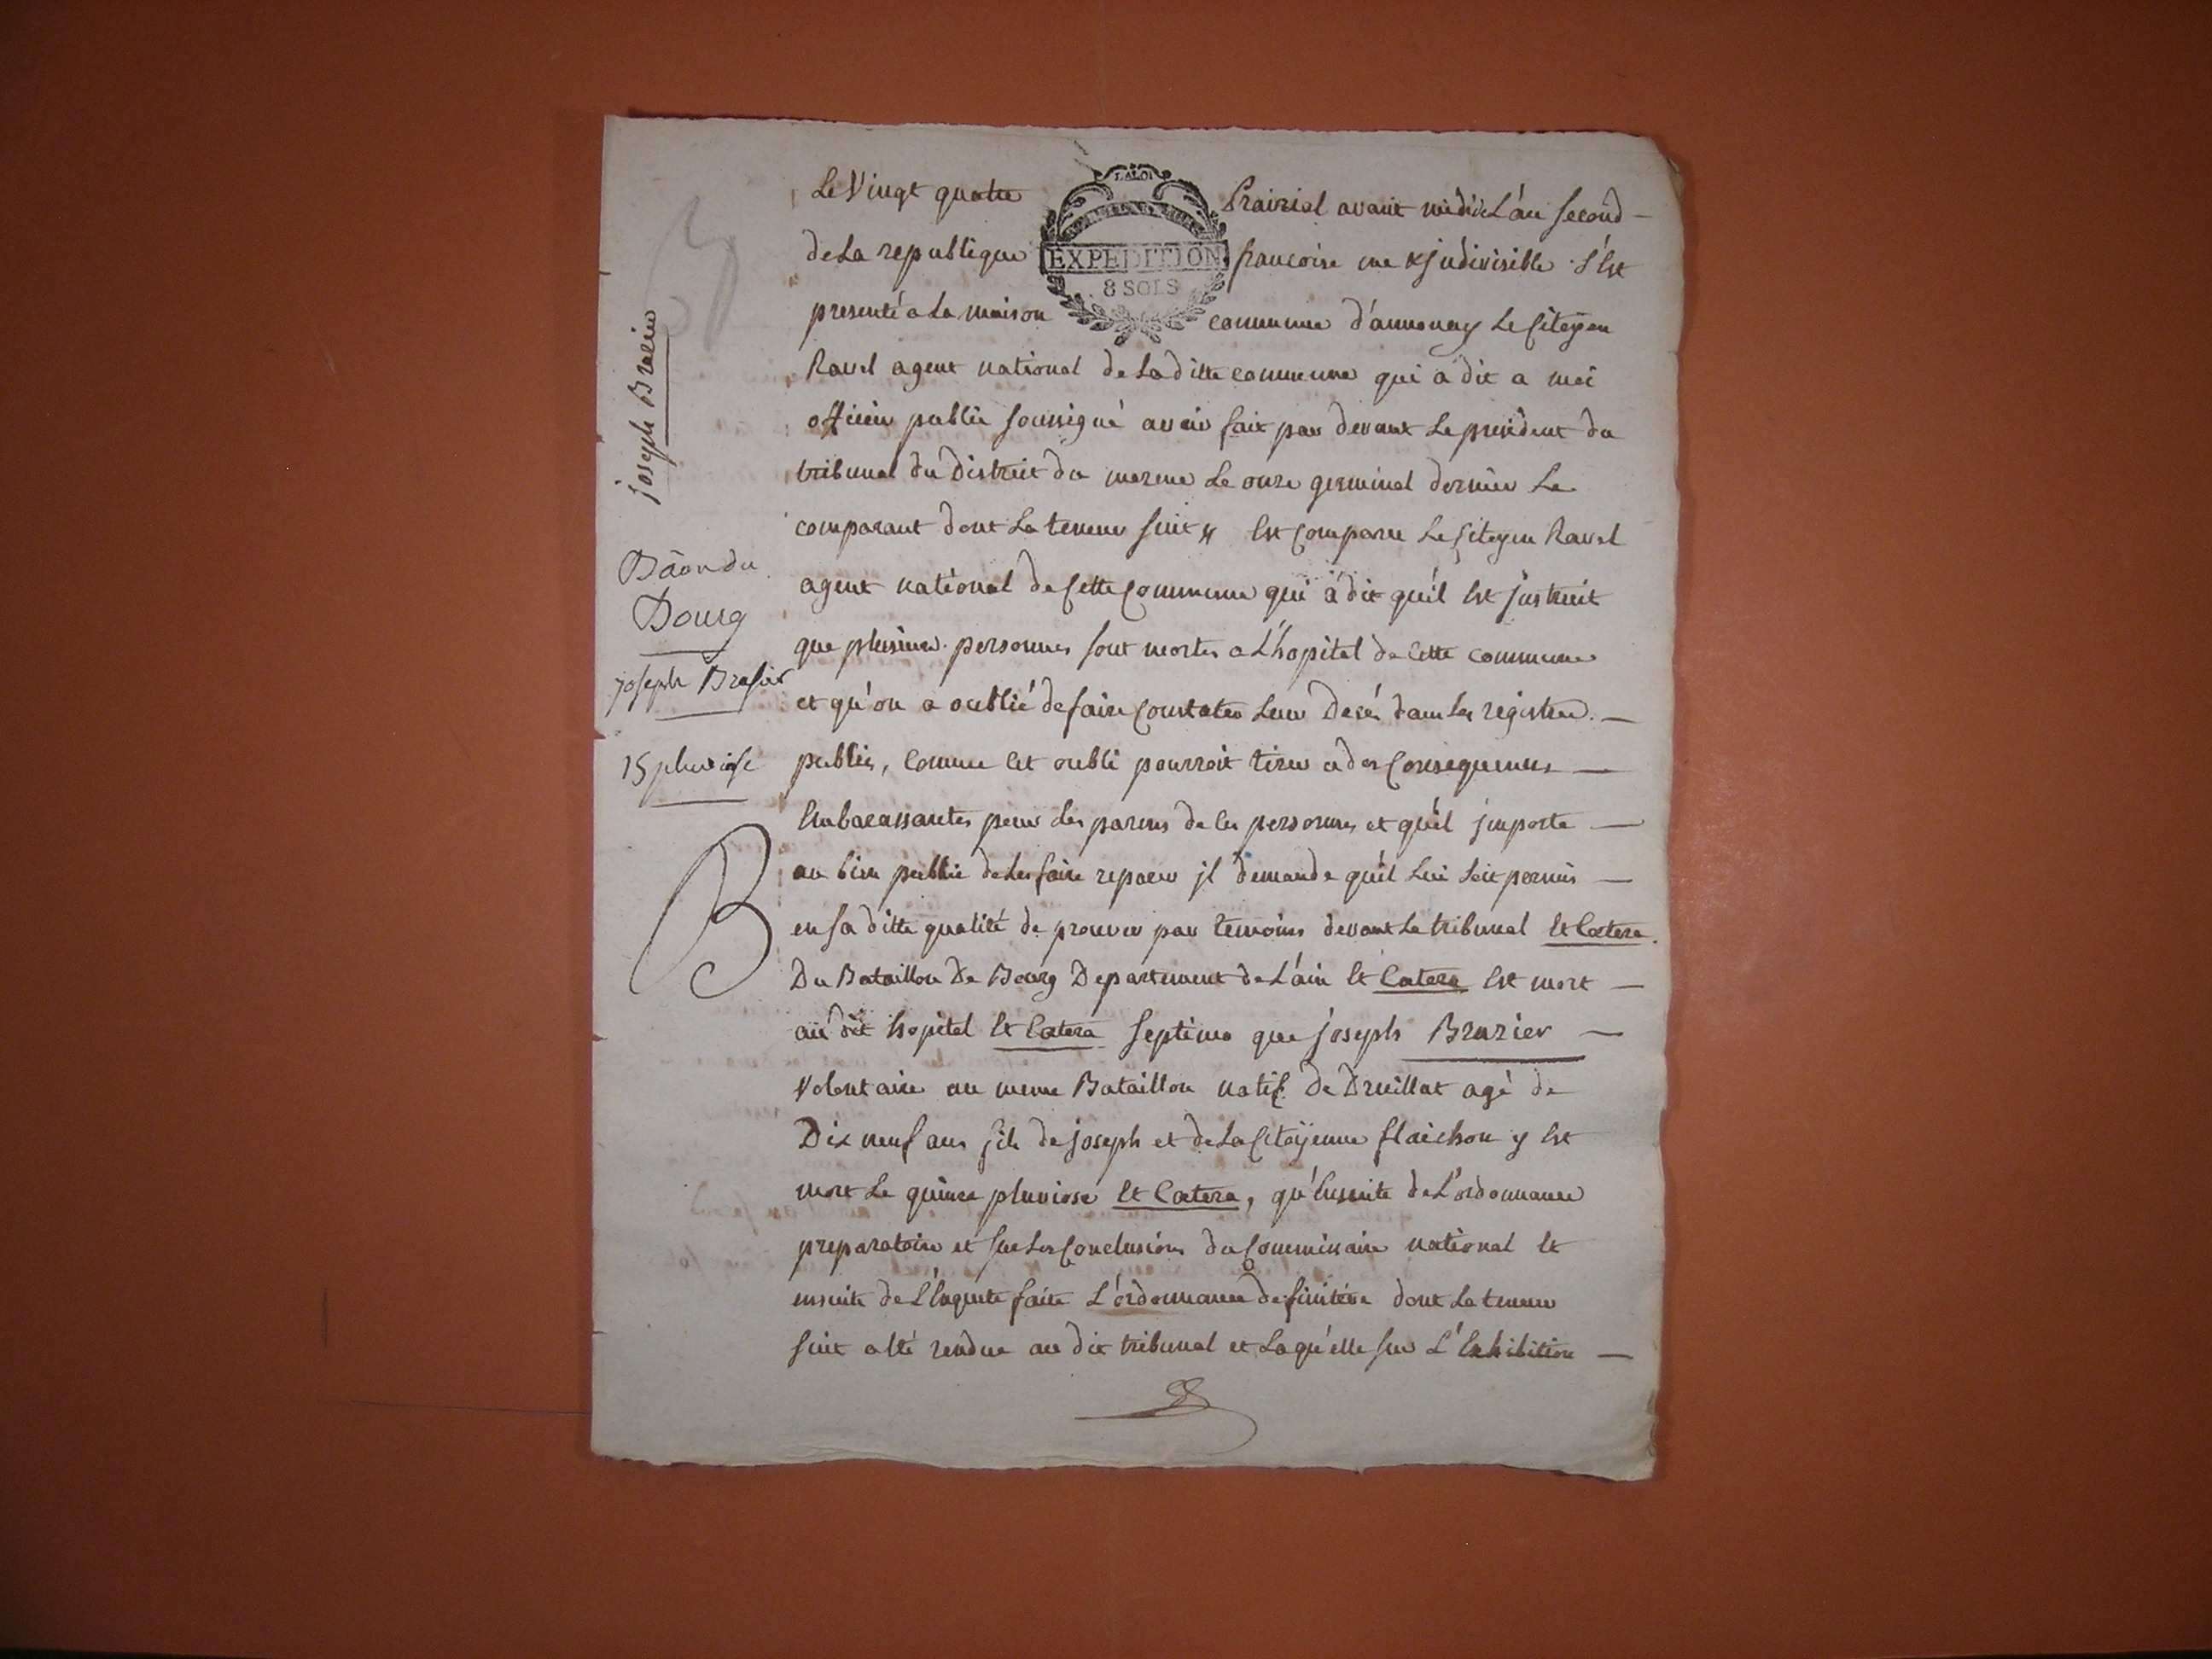 Le Vingt quatre Prairial avant midi de L'an second
de La republique francoise une & jndivisible s'Est
presenté a La maison commune d'annonay Le Citoyen
Ravel agent national de La ditte commune qui a dit a moi
officier public soussigné avoir fait par devant Le president du
tribunal du District du mezene Le onze germinal dernier Le
comparant dont La teneur suit Est Comparu Le Citoyen Ravel
agent national de Cette Commune qui à dit qu'il Est jnstruit
que plusieurs personnes sont mortes a L'hopital de Cette commune
et qu'on a oublié de faire Constater Leur Decés dans Les registres
publics, Comme Cet oubli pourroit tirer a des Consequences
Embarassantes pour Les parens de Ces personnes et qu'il jmporte
au bien public de Les faire reparer jl demande qu'il Lui soit permis
en sa ditte qualité de prouver par temoins devant Le tribunal Et Cætera
Du Bataillon De Bourg Departement de L'ain Et Cætera Est mort
au dit hopital Et Cætera septimo que joseph Brazier
Volontaire au meme Bataillon natif De Druillat agé de
Dix neuf ans fils de joseph et de La Citoÿenne flaichon y Est
mort Le quinze pluviose Et Cætera, qu'Ensuite de L'ordonnance
preparatoire et sur Les Conclusions du Commissaire national Et
ensuite de L'Enquete faite L'ordonnance definitive dont La teneur
suit a Eté rendue au dit tribunal et Laquelle sur L'Exhibition
LA LOI
EXPEDITION
8 SOLS
joseph Brazier
Baon du
Bourg
joseph Brasier
15 pluviose
B